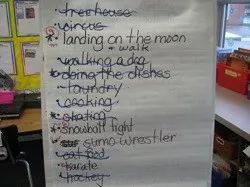 treehouse
circus
landing on the moon
+ walk
walking a dog
doing the dishes
laundry
cooking
skating
snowball fight
sumo wrestler
eat food
karate
hockey